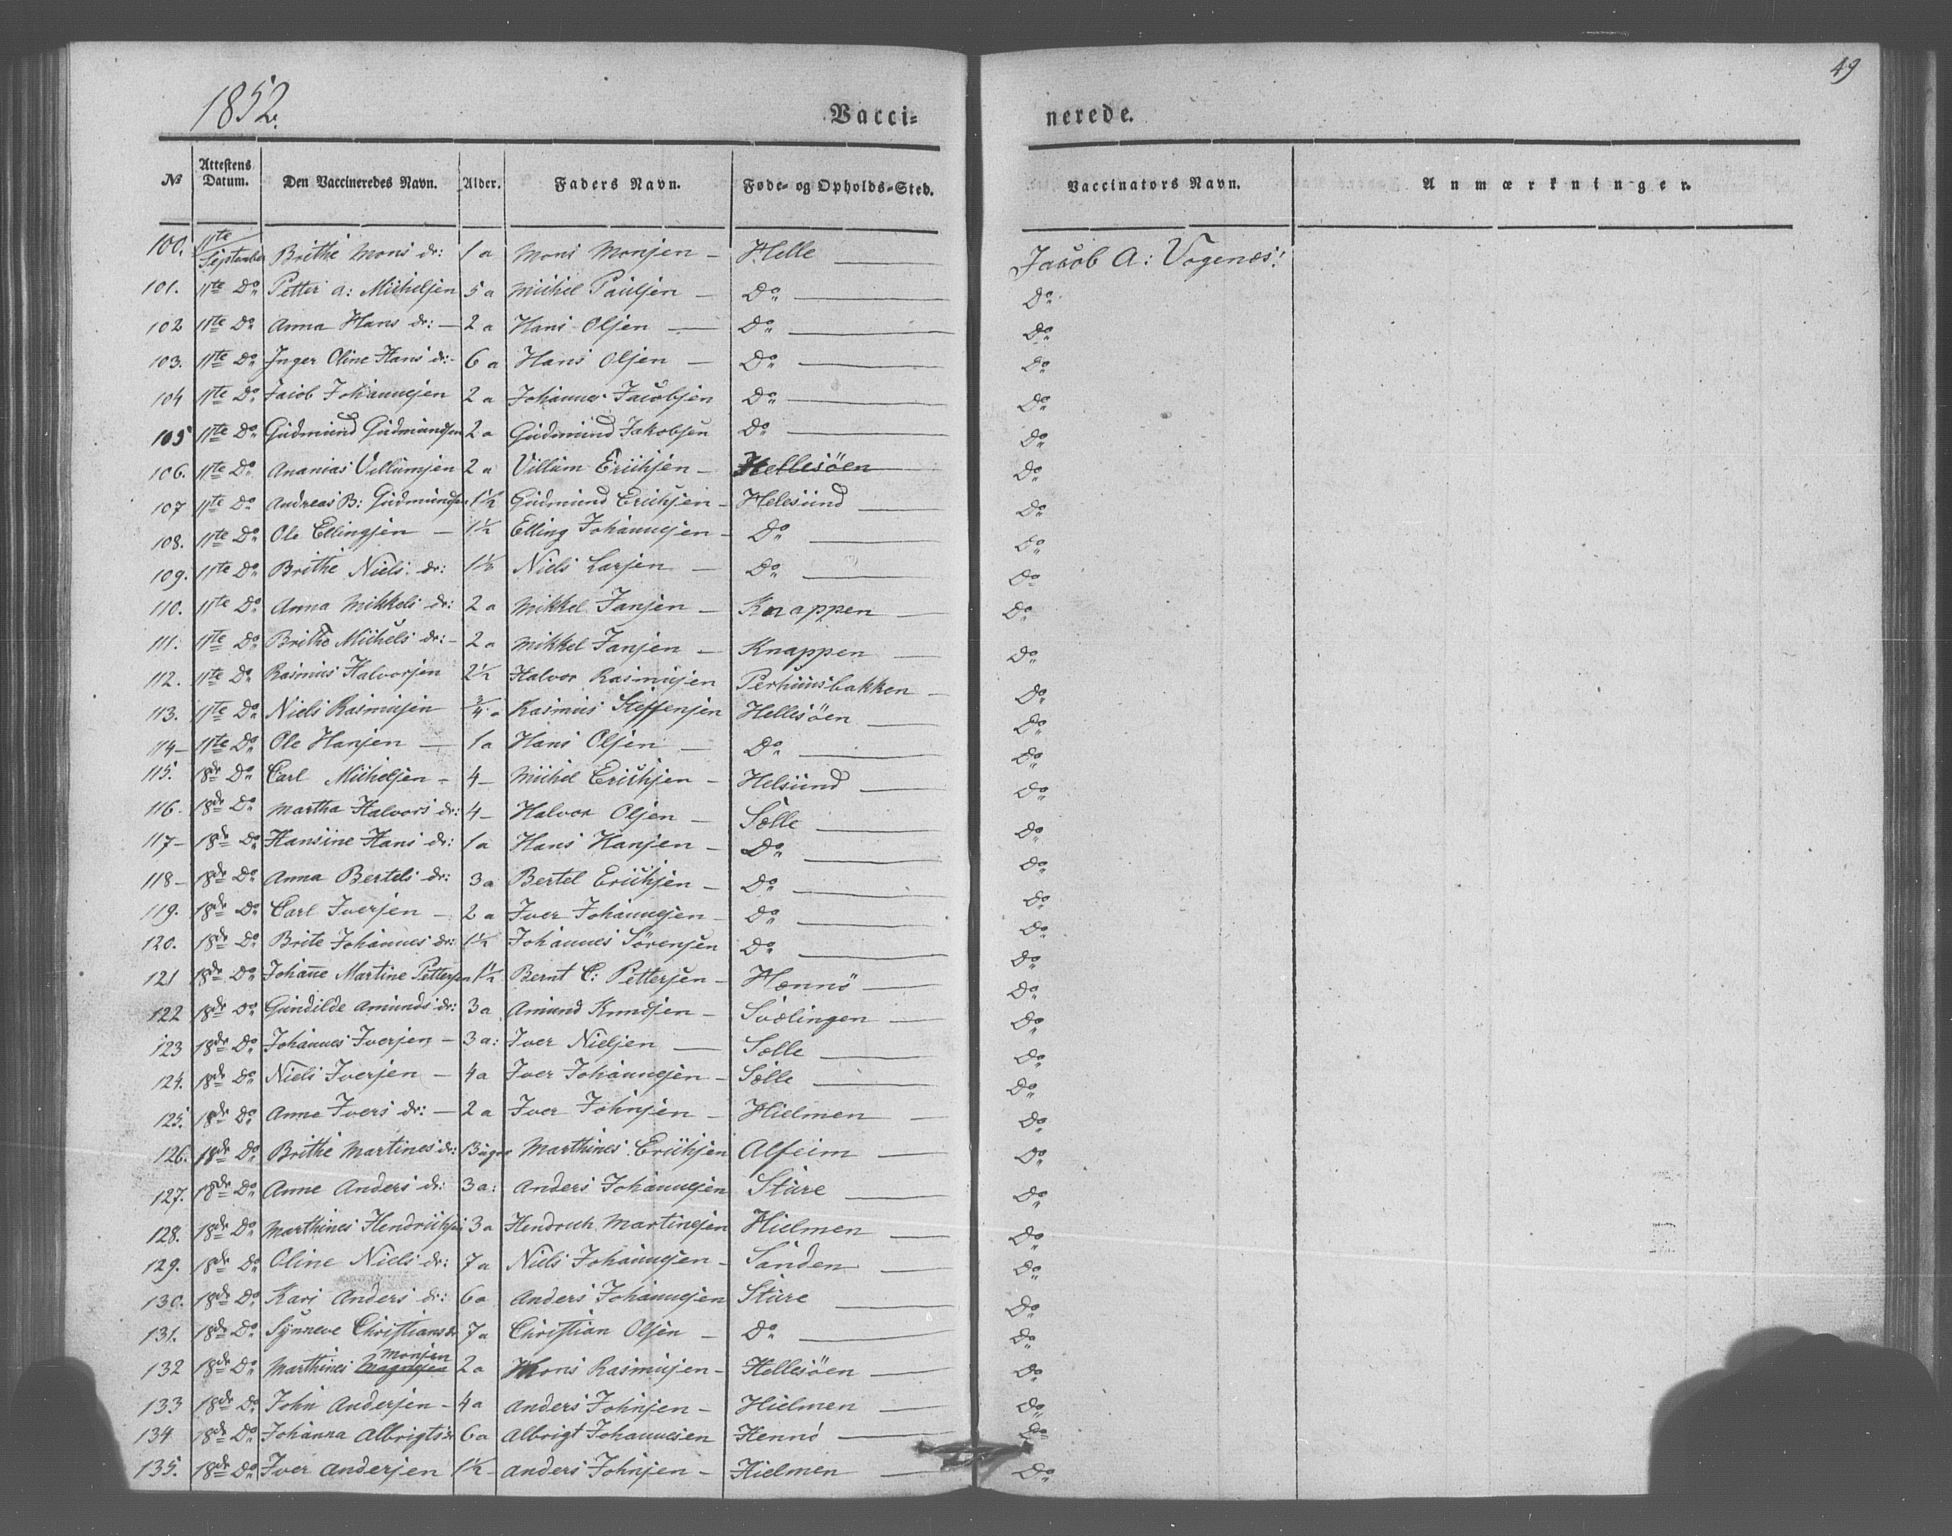 49
1852.
Vacci= nerede.
№ Attestens Datum. Den Vaccineredes Navn. Alder. Faders Navn. Føde- og Opholds-Sted. Vaccinators Navn. Anmærkninger.
100. 11te September Brithe Mons dr: 1 a Mons Monsen — Helle — Jacob A: Vogenæs!
101. 11te Do Petter A: Michelsen 5 a Michel Paulsen — Do — Do
102 11te Do Anna Hans dr: — 2 a Hans Olsen — Do — Do
103. 11te Do Inger Oline Hans dr: 6 a Hans Olsen — Do — Do
104 11te Do Jacob Johannesen 2 a Johannes Jacobsen Do — Do
105 11te Do Gudmund Gudmundsen 2 a Gudmund Jakobsen Do — Do
106. 11te Do Ananias Villumsen 2 a Villum Erichsen — Hellesöen Do
107 11te Do Andreas B: Gudmundsen 1½ Gudmund Erichsen — Helesund — Do
108. 11te Do Ole Ellingsen — 1½ Elling Johannesen — Do — Do
109. 11te Do Brithe Niels dr: 1½ Niels Larsen — Do — Do
110. 11te Do Anna Mikkels dr: 2 a Mikkel Jansen — Knappen — Do
111. 11te Do Brithe Michels dr: — 2 a Mikkel Jansen — Knappen — Do
112. 11te Do Rasmus Halvorsen 2½ Halvor Rasmusen Perhuusbakken — Do
113. 11te Do Niels Rasmusen ¾ a Rasmus Steffensen Hellesöen — Do
114 — 11te Do Ole Hansen — 1 a Hans Olsen — Do — Do
115. 18de Do Carl Michelsen — 4 — Michel Erichsen — Helsund — Do
116. 18de Do Martha Halvors dr: 4 — Halvor Olsen — Sælle — Do
117 — 18de Do Hansine Hans dr: 1 a Hans Hansen — Do — Do
118 — 18de Do Anna Bertels dr: 3 a Bertel Erichsen — Do — Do
119. 18de Do Carl Iversen — 2 a Iver Johannesen — Do — Do
120. 18de Do Brite Johannes dr: 1½ Johannes Sörensen Do — Do
121 18de Do Johañe Martine Pettersen 1½ Bernt C: Pettersen — Hennö — Do
122 18de Do Gundilde Amunds dr: 3 a Amund Knudsen — Svælingen — Do
123 18de Do Johannes Iversen — 3 a: Iver Nielsen — Sælle — Do
124. 18de Do Niels Iversen — 4 a Iver Johannesen — Sælle — Do
125. 18de Do Anne Ivers dr: — 2 a Iver Johnsen — Hielmen — Do
126. 18de Do Brithe Martines dr: Marthines Erichsen Alfeim — Do
127. 18de Do Anne Anders dr: 3 a: Anders Johannesen Sture — Do
128. 18de Do Marthines Hendrichsen 3 a Hendrich Martinesen Hielmen — Do
129. 18de Do Oline Niels dr: 7 a Niels Johannesen — Sanden — Do
130. 18de Do Kari Anders dr: 6 a Anders Johannesen Sture — Do
131. 18de Do Synneve Christians dr 7 a Christian Olsen — Do — Do
132 18de Do Marthines Monsen 2 a Mons Rasmusen — Hellesöen — Do
133 18de Do John Andersen — 4 a Anders Johnsen — Hielmen — Do
134 18de Do Johanna Albrigts dr 6 a Albrigt Johannesen Hennö — Do
135. 18de Do Iver Andersen 1½ Anders Johnsen — Hielmen — Do